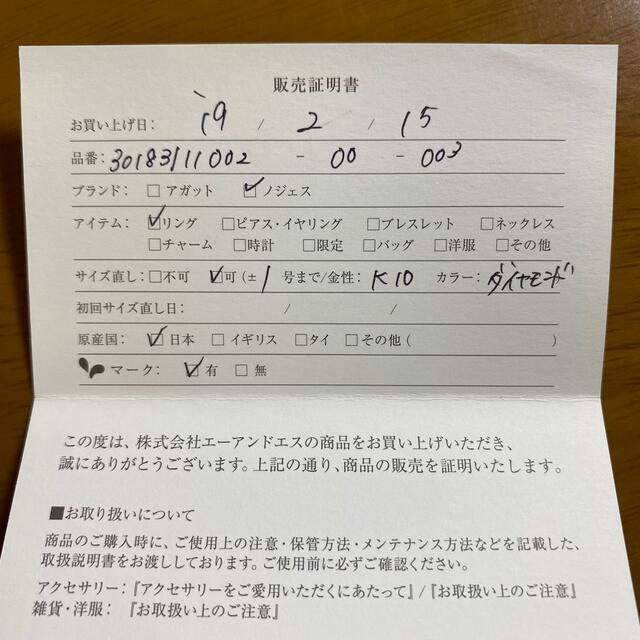 販売証明書
お買い上げ日: 19 / 2 / 15
品番: 3018311002 - 00 - 003
ブランド: □ アガット ☑ ノジェス
アイテム: ☑リング □ピアス・イヤリング □ブレスレット □ネックレス
□チャーム □時計 □限定 □バッグ □洋服 □その他
サイズ直し: □不可 ☑可 (± 1 号まで/金性: K10 カラー: ダイヤモンド
初回サイズ直し日: / /
原産国: ☑日本 □イギリス □タイ □その他 ( )
マーク: ☑有 □無
この度は、株式会社エーアンドエスの商品をお買い上げいただき、
誠にありがとうございます。上記の通り、商品の販売を証明いたします。
■お取り扱いについて
商品のご購入時に、ご使用上の注意・保管方法・メンテナンス方法などを記載した、
取扱説明書をお渡ししております。ご使用前に必ずご確認ください。
アクセサリー:『アクセサリーをご愛用いただくにあたって』/『お取扱い上のご注意』
雑貨・洋服:『お取扱い上のご注意』